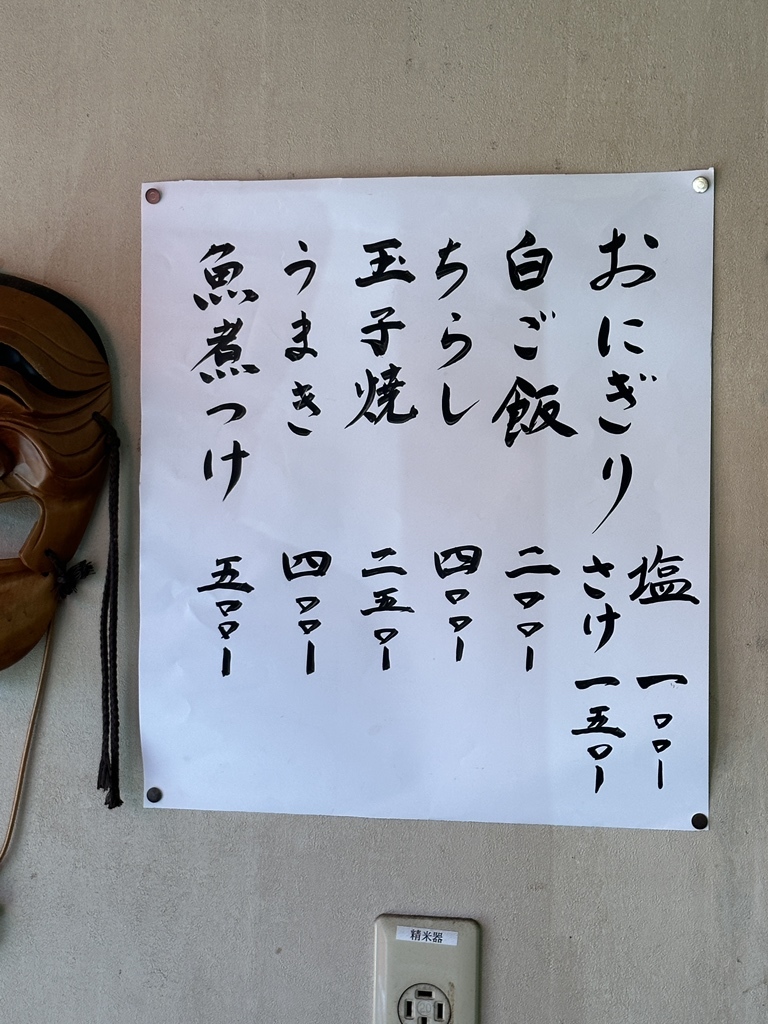 おにぎり 塩 一〇〇ー
さけ 一五〇ー
白ご飯 二〇〇ー
ちらし 四〇〇ー
玉子焼 二五〇ー
うまき 四〇〇ー
魚煮つけ 五〇〇ー
精米器